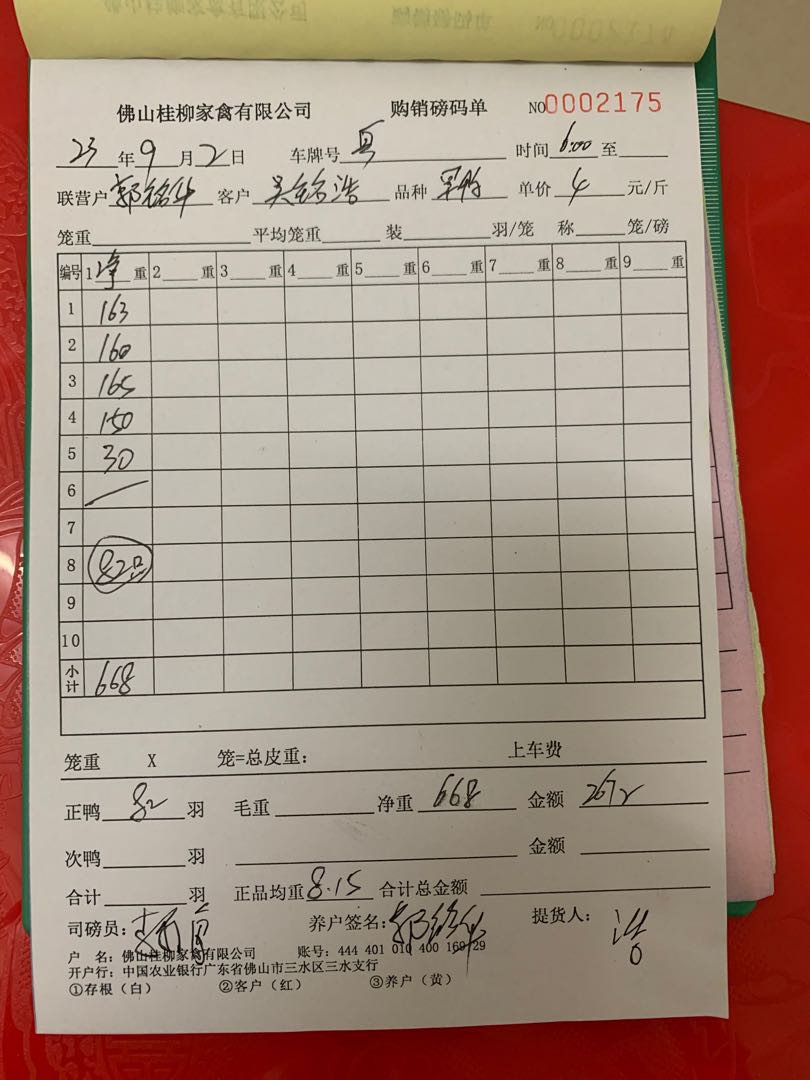 佛山桂柳家禽有限公司 购销磅码单 NO0002175
23年9月2日 车牌号 时间6:00至
联营户郭铭华 客户吴铭浩 品种 单价4元/斤
笼重 平均笼重 装 羽/笼 称 笼/磅
编号 1净重 2重 3重 4重 5重 6重 7重 8重 9重
1 163
2 160
3 165
4 150
5 30
6
7
8 82只
9
10
小计 668
笼重 X 笼=总皮重: 上车费
正鸭82羽 毛重 净重668 金额2672
次鸭 羽 金额
合计 羽 正品均重8.15 合计总金额
司磅员: 养户签名:郭铭华 提货人: 浩
户 名:佛山桂柳家禽有限公司 账号:444 401 010 400 169 29
开户行:中国农业银行广东省佛山市三水区三水支行
①存根(白) ②客户(红) ③养户(黄)